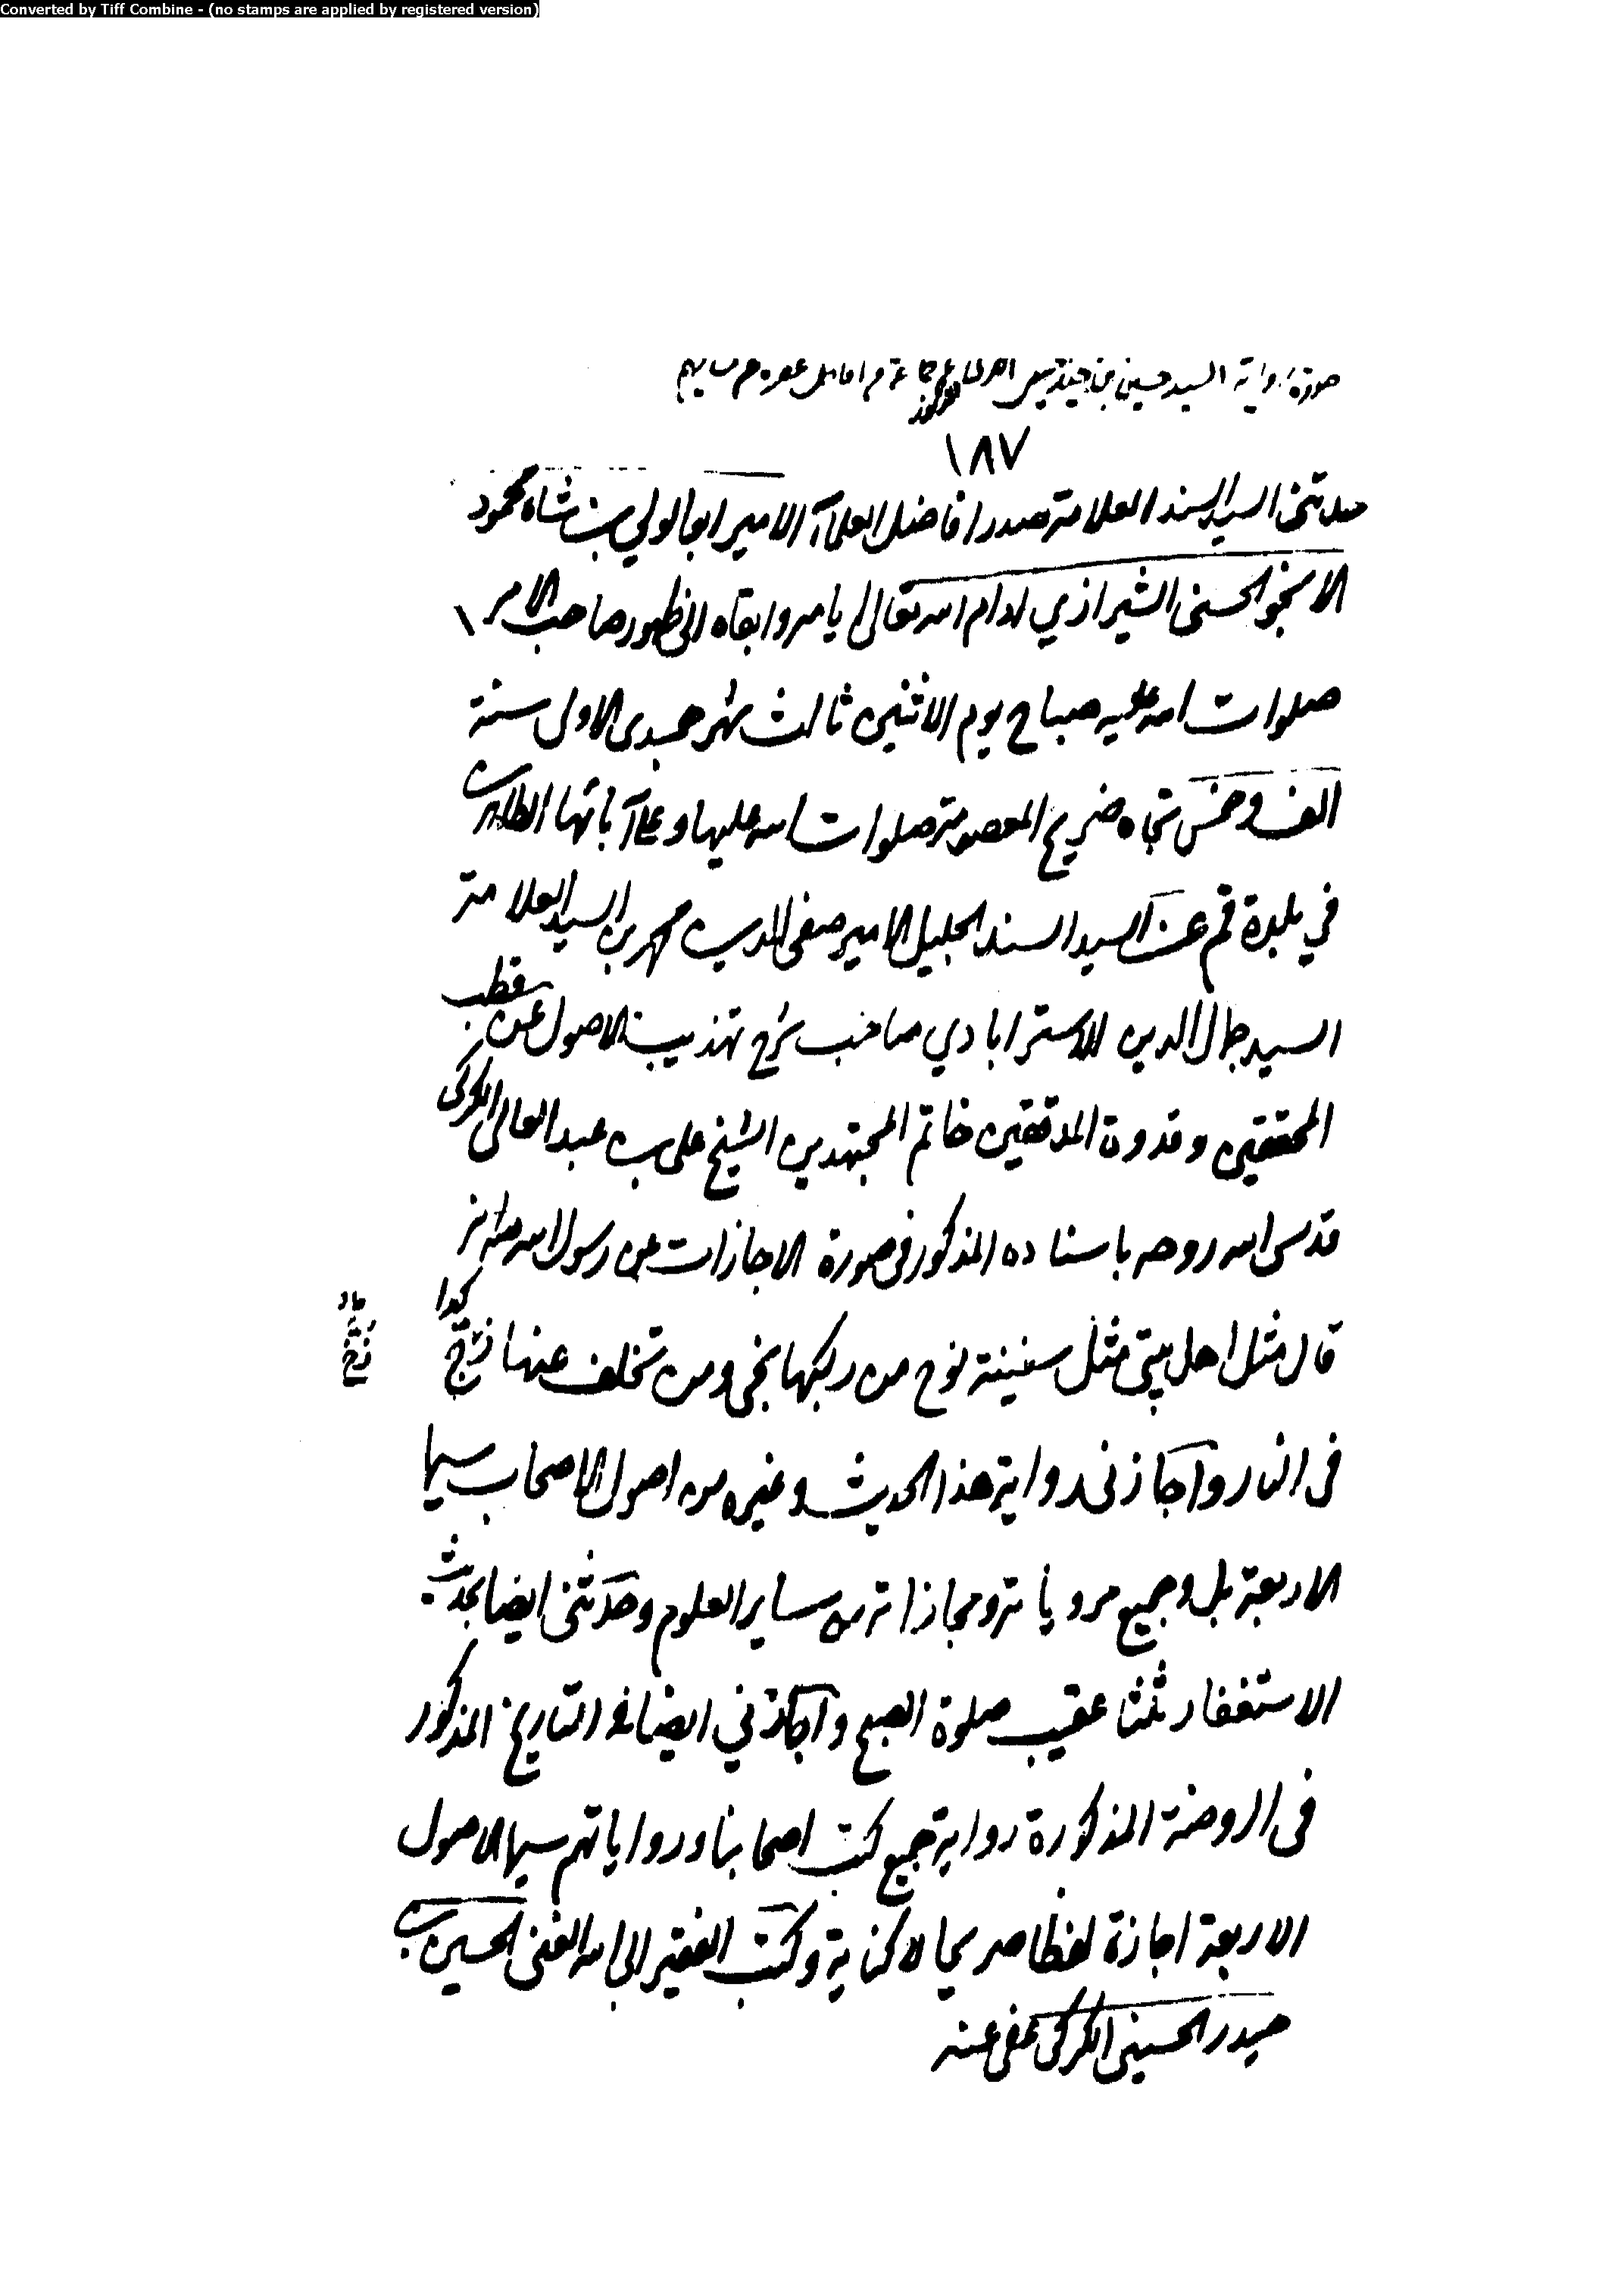 Converted by Tiff Combine - (no stamps are applied by registered version)
صورة رواية السيد حسين بن حيدر
١٨٧
حدثني السيد السند العلامة صدر افاضل العلمآء الامير ابوالولي بن شاه محمود
الانجو الحسني الشيرازي ادام الله تعالى ايامه وابقاه الى ظهور صاحب الامر
صلوات الله عليه صباح يوم الاثنين ثالث شهر جمدى الاولى سنة
الف وخمس تجاه ضريح المعصومة صلوات الله عليها وعلى آبائها الطاهرين
في بلدة قم عن السيد السند الجليل الامير صفى الدين محمد بن السيد العلامة
السيد جمال الدين الاسترابادي صاحب شرح تهذيب الاصول عن قطب
المحققين وقدوة المدققين خاتم المجتهدين الشيخ على بن عبد العالى الكركى
قدس الله روحه باسناده المذكور فى صورة الاجازات عن رسول الله صلى انه
قال مثل اهل بيتى مثل سفينة نوح من ركبها نجى ومن تخلف عنها زخ كذا
زخ
فى النار واجازنى رواية هذا الحديث وغيره من اصول الاصحاب سيما
الاربعة بل وجميع مروياته ومجازاته من ساير العلوم وحدثنى ايضا بحديث
الاستغفار ثلثا عقيب صلوة الصبح واجازني ايضا فى التاريخ المذكور
فى الروضة المذكورة رواية جميع كتب اصحابنا ورواياتهم سيما الاصول
الاربعة اجازة لفظا صريحا لا كناية وكتب الفقير الى الله الغنى الحسين بن
حيدر الحسينى الكركى عفى عنه